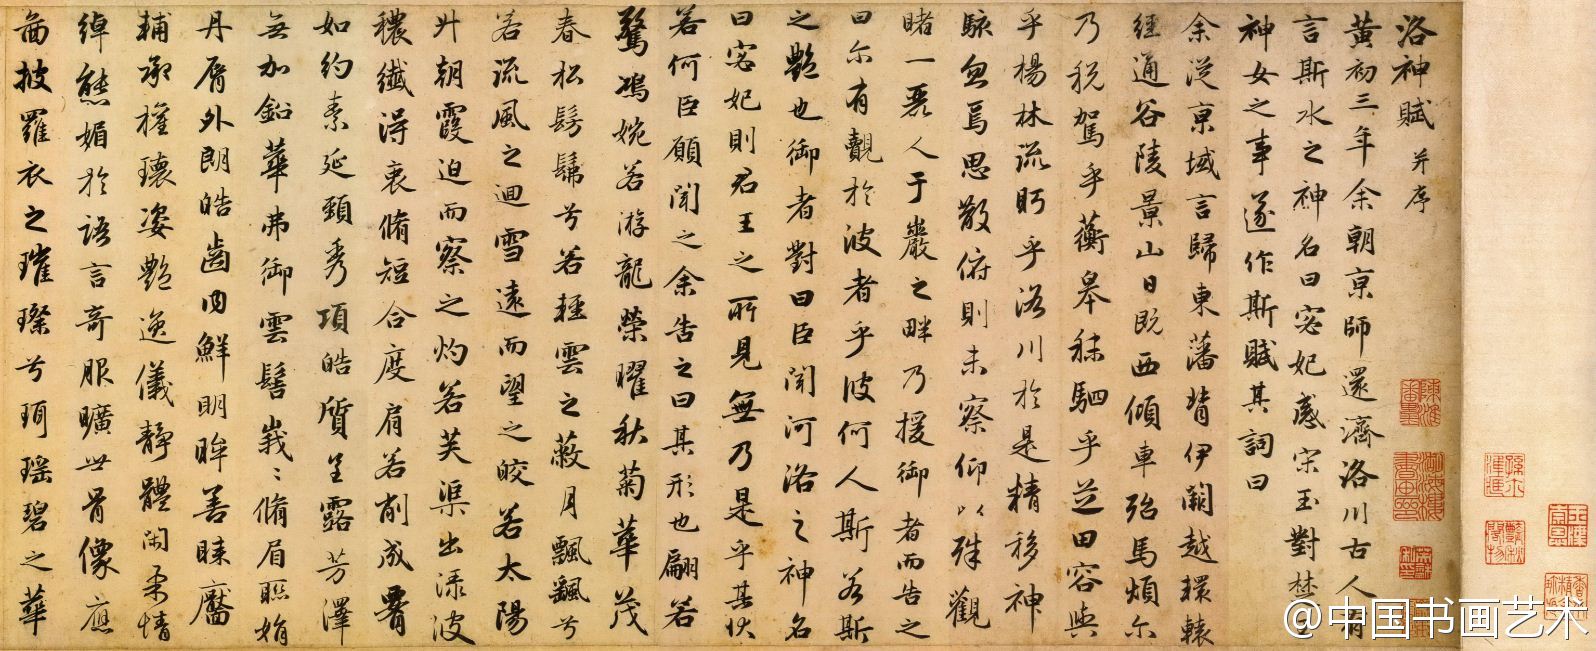 洛神賦 并序
黄初三年余朝京師還濟洛川古人有
言斯水之神名曰宓妃感宋玉對楚王
神女之事遂作斯賦其詞曰
余從京域言歸東藩背伊闕越轘轅
經通谷陵景山日既西傾車殆馬煩尔
乃税駕乎蘅皋秣駟乎芝田容與
乎楊林流眄乎洛川於是精移神
駭忽焉思散俯則未察仰以殊觀
睹一麗人于巖之畔乃援御者而告之
曰尔有覿於彼者乎彼何人斯若斯
之艷也御者對曰臣聞河洛之神名
曰宓妃則君王之所見無乃是乎其状
若何臣願聞之余告之曰其形也翩若
驚鴻婉若游龍榮曜秋菊華茂
春松髣髴兮若輕雲之蔽月飄颻兮
若流風之迴雪遠而望之皎若太陽
升朝霞迫而察之灼若芙渠出渌波
穠纖得衷脩短合度肩若削成腰
如約素延頸秀項皓質呈露芳澤
無加鉛華弗御雲髻峩〻脩眉聯娟
丹脣外朗皓齒内鮮明眸善睞靨
輔承權瓌姿艷逸儀静體閑柔情
綽態媚於語言奇服曠世骨像應
啚披羅衣之璀璨兮珥瑶碧之華
@中国书画艺术